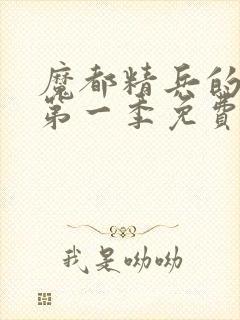 魔都精兵的
第一季免費
我是呦呦